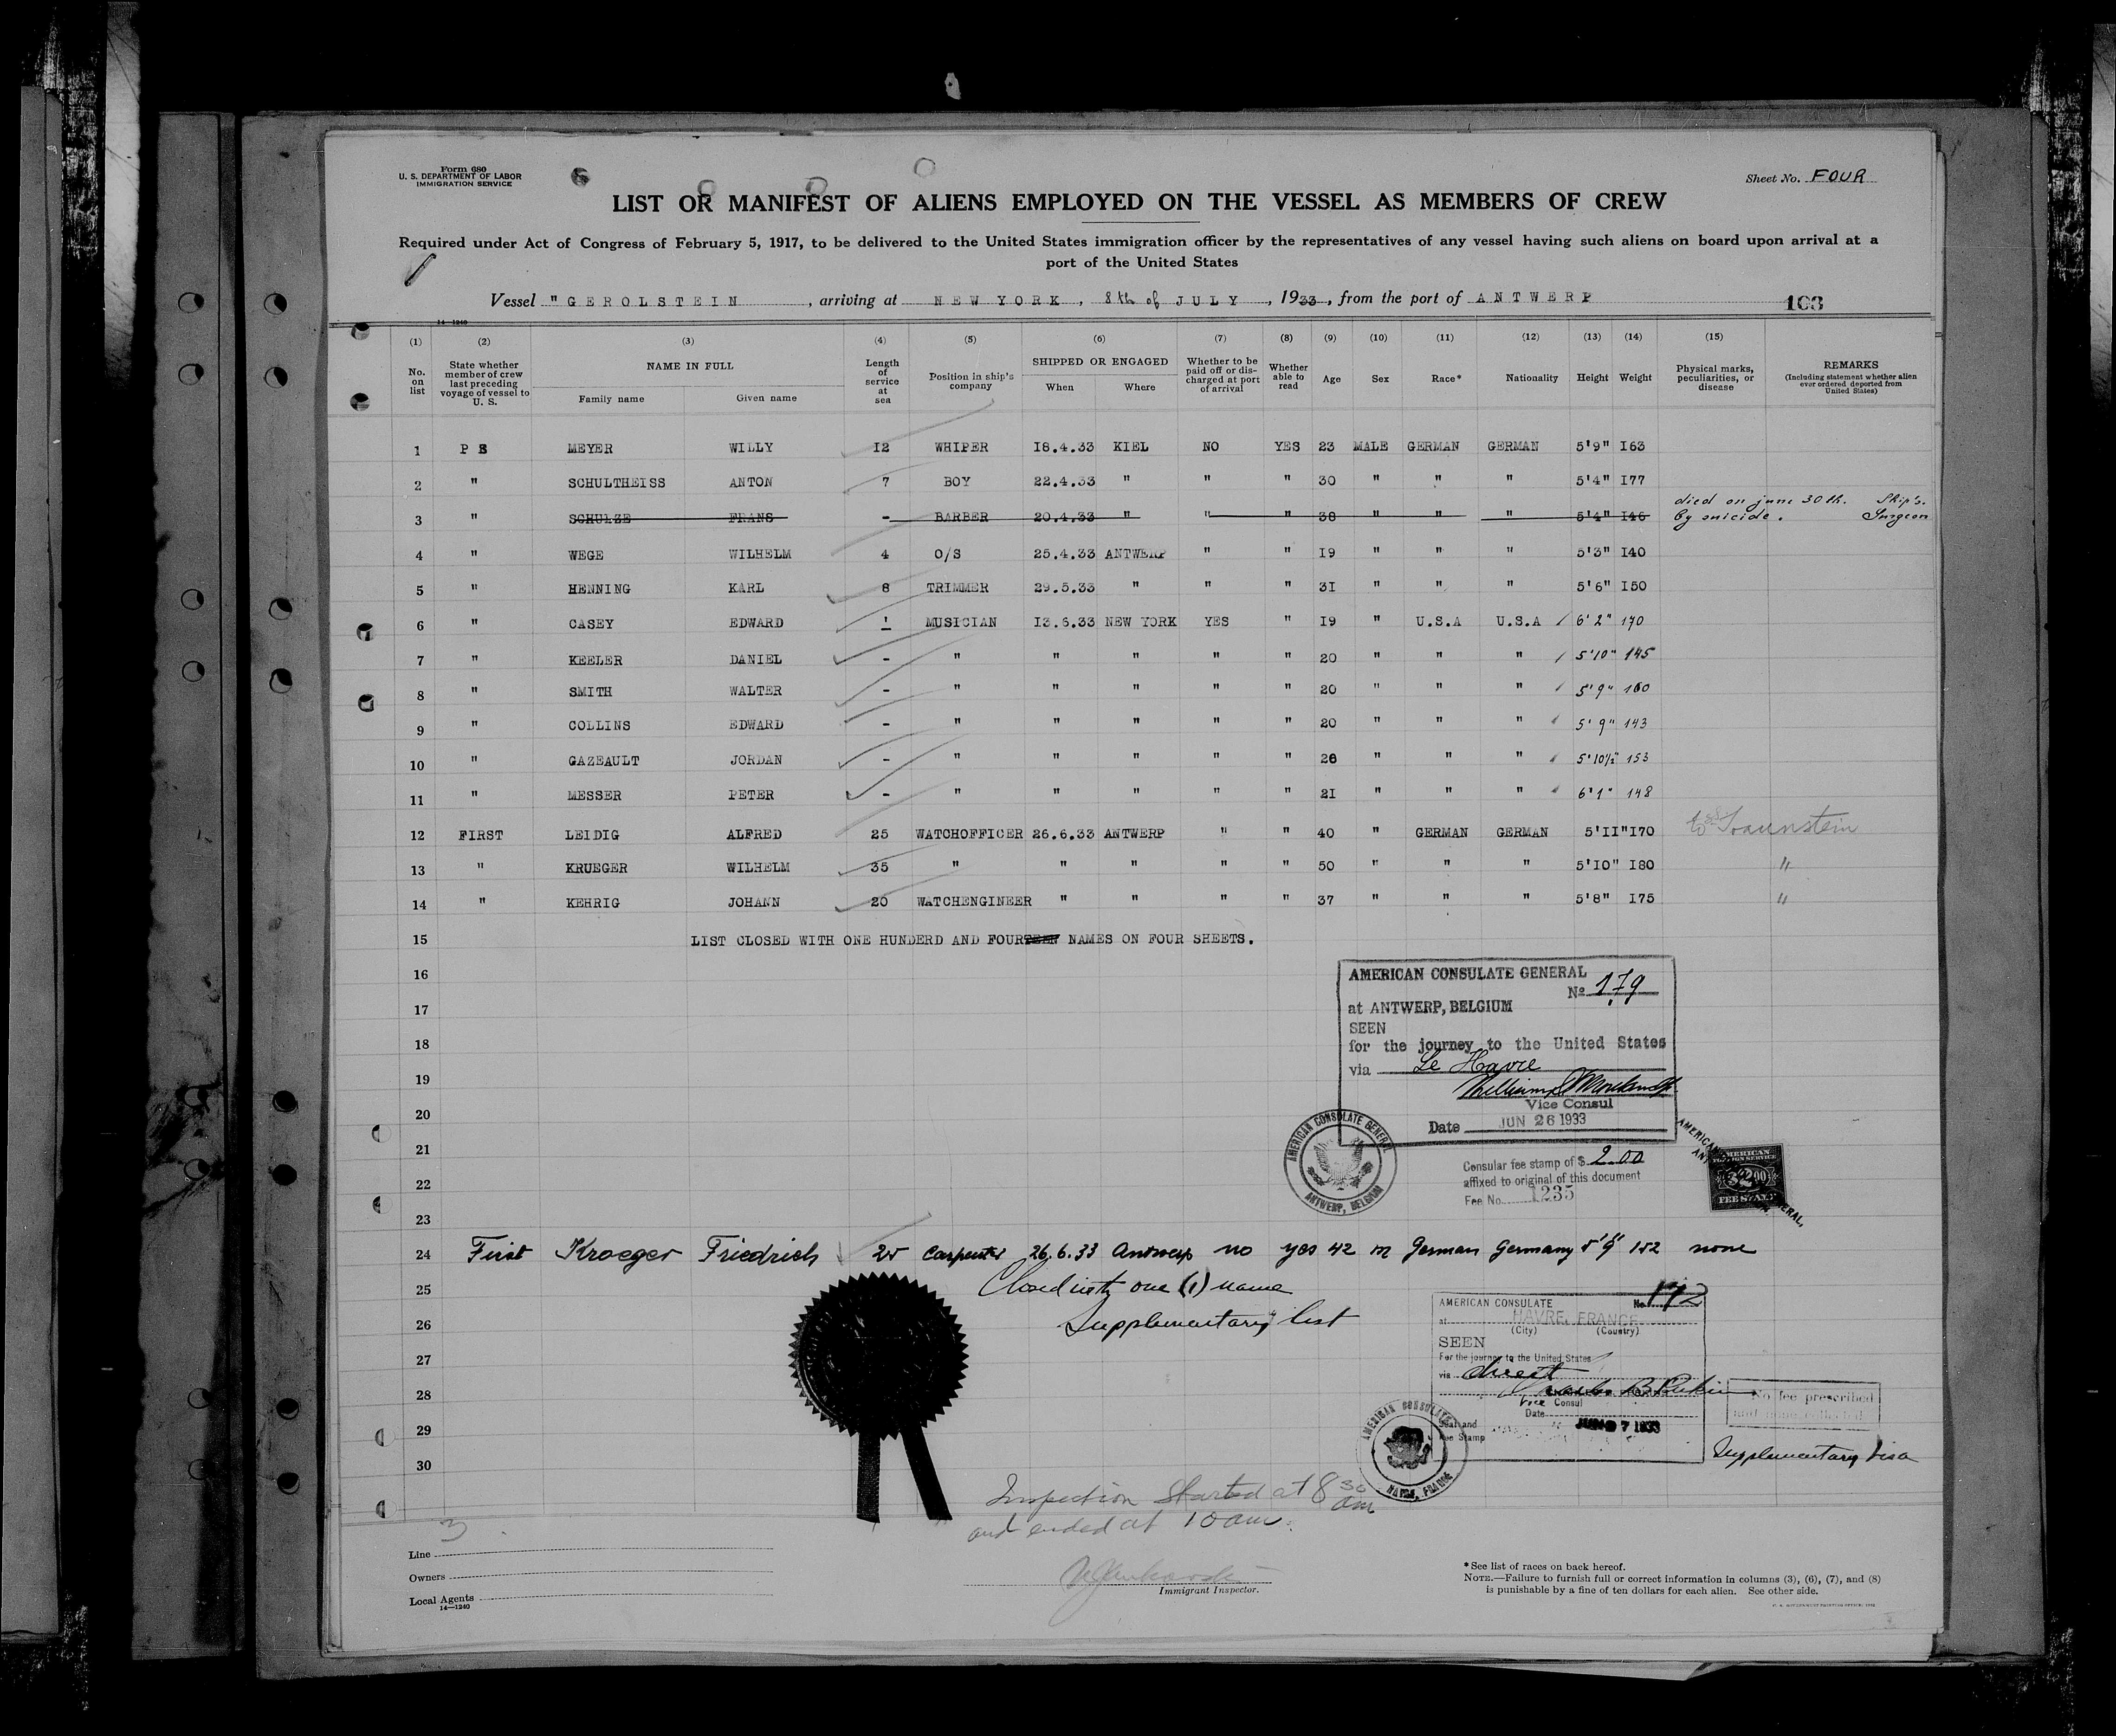 Form 680
U. S. DEPARTMENT OF LABOR
IMMIGRATION SERVICE
Sheet No. FOUR
LIST OR MANIFEST OF ALIENS EMPLOYED ON THE VESSEL AS MEMBERS OF CREW
Required under Act of Congress of February 5, 1917, to be delivered to the United States immigration officer by the representatives of any vessel having such aliens on board upon arrival at a
port of the United States
Vessel "GEROLSTEIN, arriving at NEW YORK, 8th of JULY, 1933, from the port of ANTWERP
103
14—1240
(1) (2) (3) (4) (5) (6) (7) (8) (9) (10) (11) (12) (13) (14) (15)
No. on list State whether member of crew last preceding voyage of vessel to U. S. NAME IN FULL Family name Given name Length of service at sea Position in ship's company SHIPPED OR ENGAGED When Where Whether to be paid off or discharged at port of arrival Whether able to read Age Sex Race* Nationality Height Weight Physical marks, peculiarities, or disease REMARKS (Including statement whether alien ever ordered deported from United States)
1 P S MEYER WILLY I2 WHIPER I8.4.33 KIEL NO YES 23 MALE GERMAN GERMAN 5'9" I63
2 " SCHULTHEISS ANTON 7 BOY 22.4.33 " " " 30 " " " 5'4" I77
3 " SCHULZE FRANS - BARBER 20.4.33 " " " 38 " " " 5'4" I46 died on june 30th. Ship's.
by suicide. Surgeon
4 " WEGE WILHELM 4 O/S 25.4.33 ANTWERP " " I9 " " " 5'3" I40
5 " HENNING KARL 8 TRIMMER 29.5.33 " " " 3I " " " 5'6" I50
6 " CASEY EDWARD 1 MUSICIAN I3.6.33 NEW YORK YES " I9 " U.S.A U.S.A 6'2" 170
7 " KEELER DANIEL - " " " " " 20 " " " 5'10" 145
8 " SMITH WALTER - " " " " " 20 " " " 5'9" 160
9 " COLLINS EDWARD - " " " " " 20 " " " 5'9" 143
10 " GAZEAULT JORDAN - " " " " " 28 " " " 5'10½" 153
11 " MESSER PETER - " " " " " 2I " " " 6'1" 148
12 FIRST LEIDIG ALFRED 25 WATCHOFFICER 26.6.33 ANTWERP " " 40 " GERMAN GERMAN 5'II" I70 Traunstein
13 " KRUEGER WILHELM 35 " " " " " 50 " " " 5'IO" I80 "
14 " KEHRIG JOHANN 20 WATCHENGINEER " " " " 37 " " " 5'8" I75 "
15 LIST CLOSED WITH ONE HUNDERD AND FOURTEEN NAMES ON FOUR SHEETS.
16
17
18
19
20
21
22
23
AMERICAN CONSULATE GENERAL
No 179
at ANTWERP, BELGIUM
SEEN
for the journey to the United States
via Le Havre
Vice Consul
Date JUN 26 1933
AMERICAN CONSULATE GENERAL
ANTWERP, BELGIUM
Consular fee stamp of $ 2.00
affixed to original of this document
Fee No. 1235
AMERICAN
FOREIGN SERVICE
$2.00
FEE STAMP
24 First Kroeger Friedrich 25 Carpenter 26.6.33 Antwerp no yes 42 m German Germany 5'9" 152 none
25 Closed with one (1) name
26 Supplementary list
27
28
29
30
AMERICAN CONSULATE No. 192
at HAVRE, FRANCE
(City) (Country)
SEEN
For the journey to the United States
via direct
Vice Consul
Date
Seal and
Fee Stamp
1933
AMERICAN CONSULATE
HAVRE, FRANCE
No fee prescribed
and none collected
Supplementary Visa
Inspection Started at 8 30 am
and ended at 10 am.
Immigrant Inspector.
3
Line
Owners
Local Agents
14—1240
*See list of races on back hereof.
NOTE.—Failure to furnish full or correct information in columns (3), (6), (7), and (8)
is punishable by a fine of ten dollars for each alien. See other side.